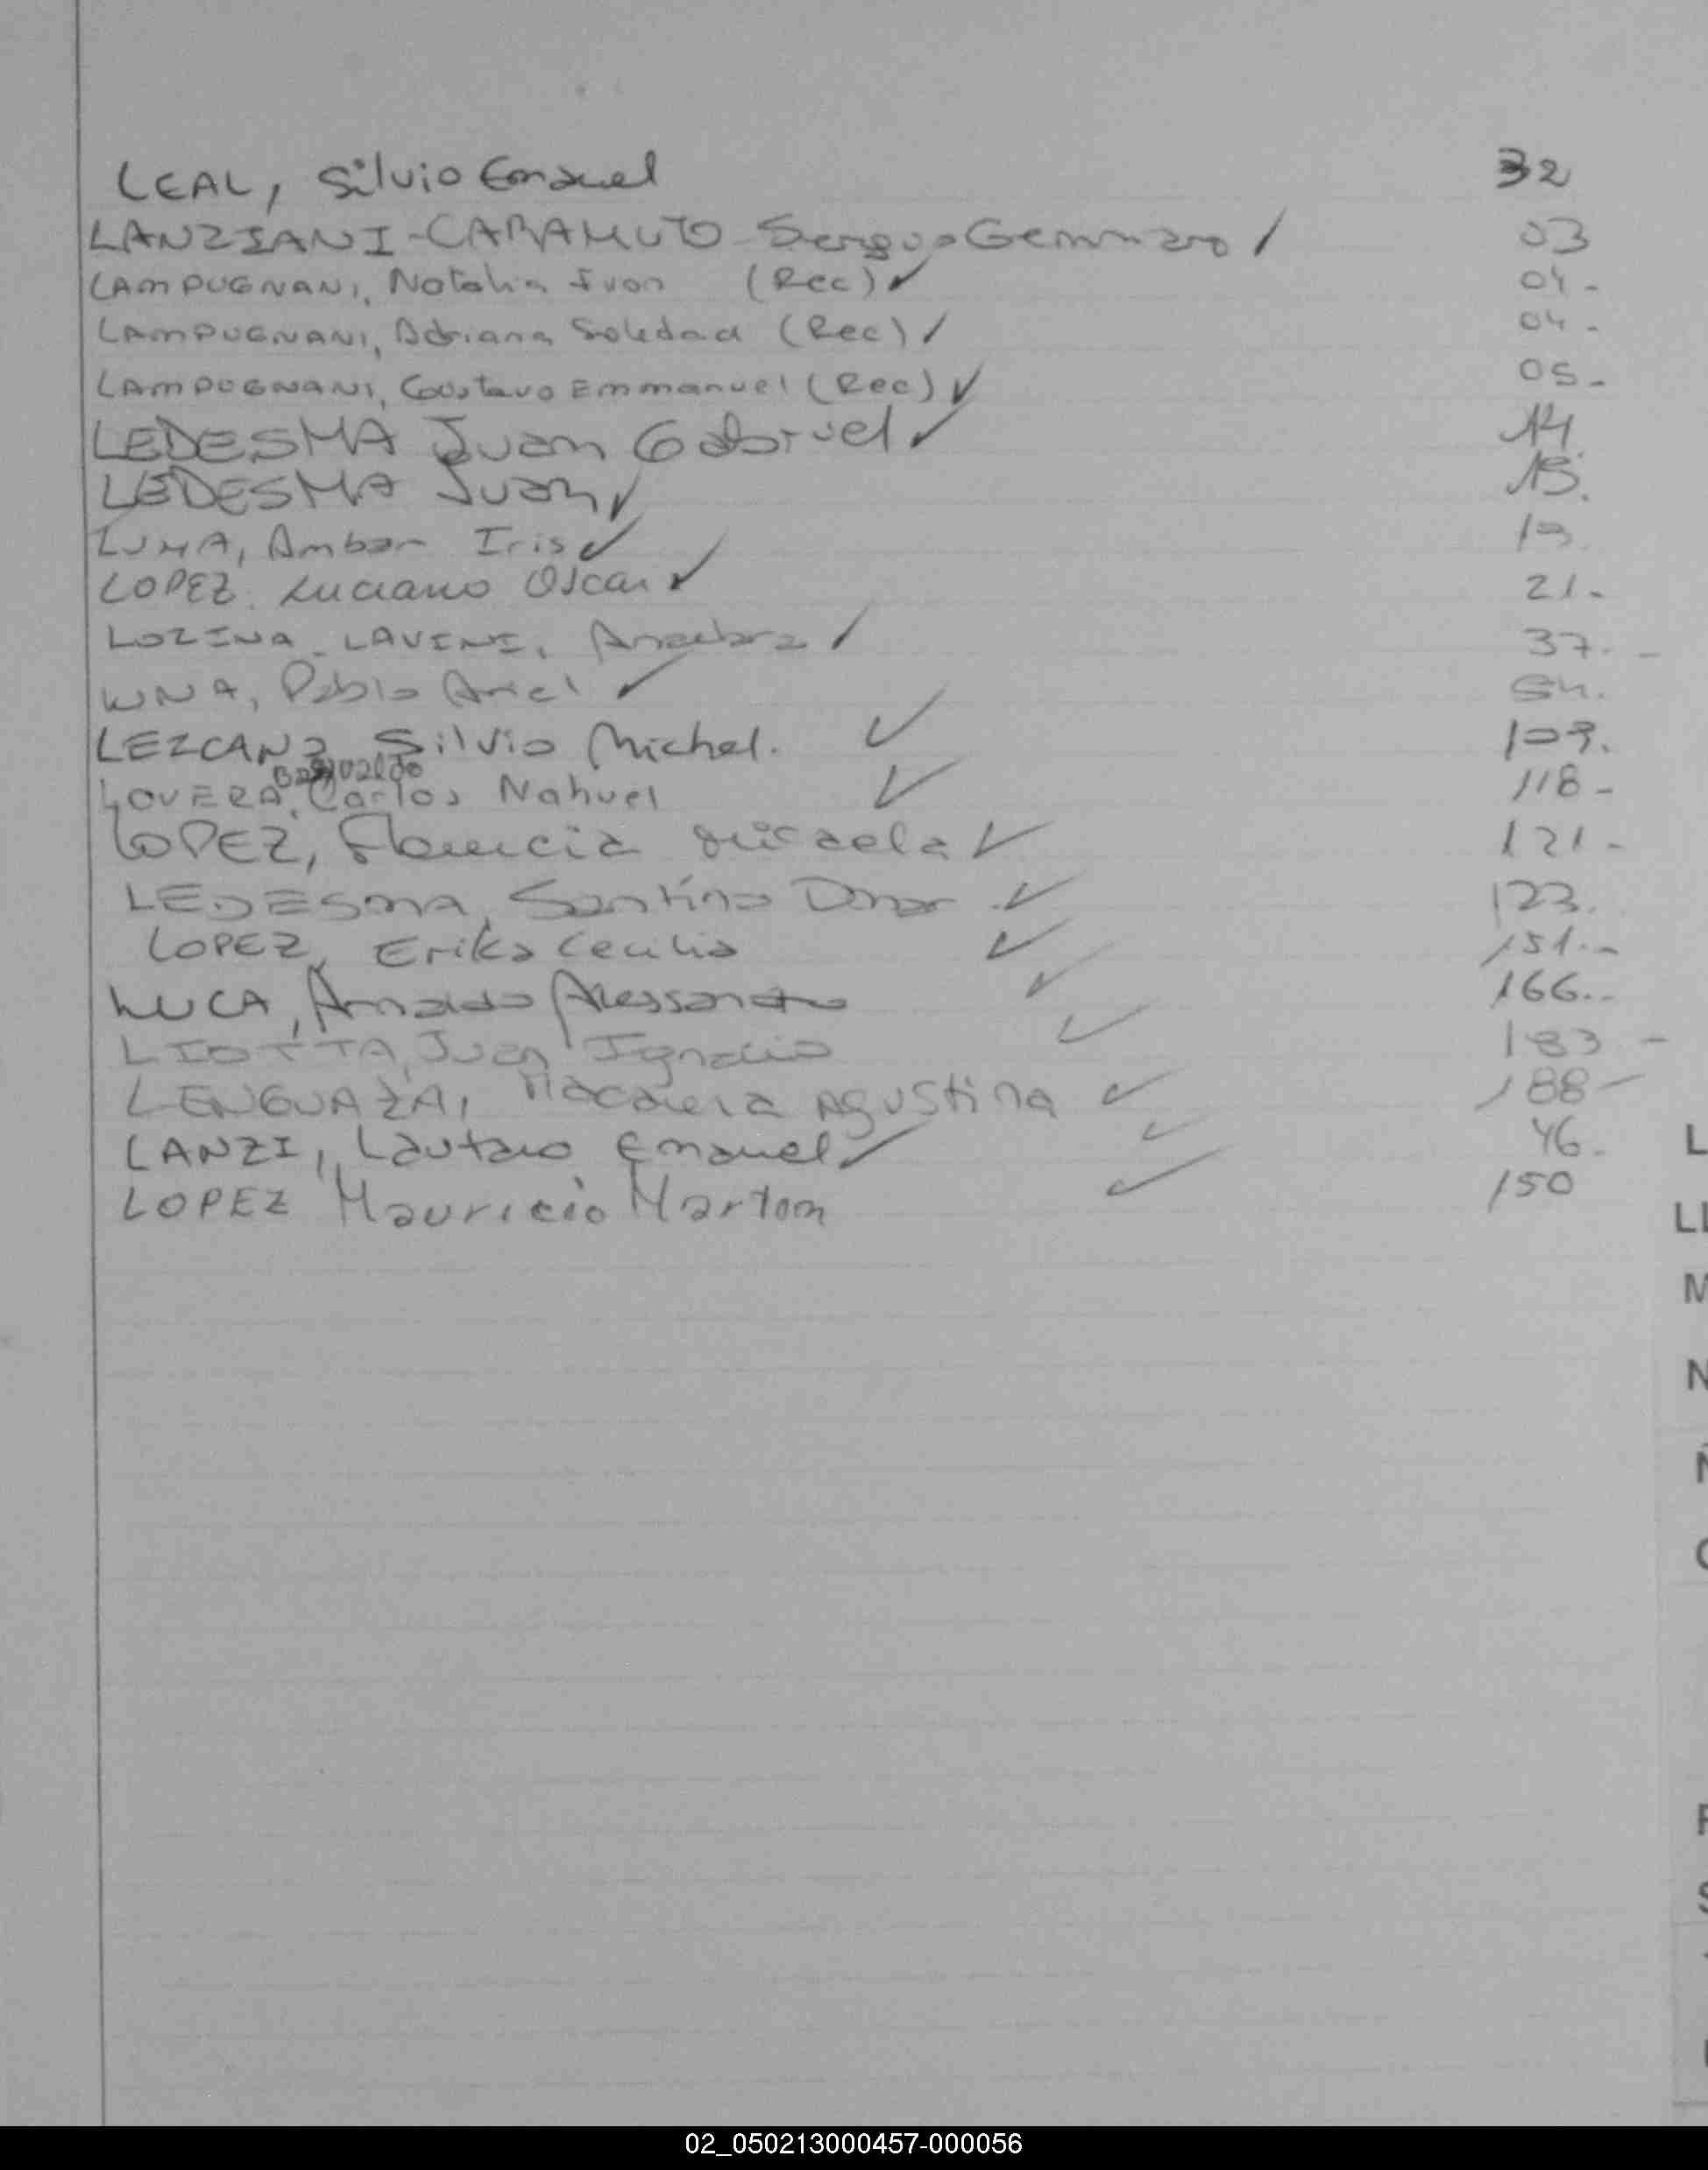 LEAL, Silvio Emanuel 32
LANZIANI-CARAMUTO Sergio Gennaro 03
LAMPUGNANI, Natalia Ivon (Rec) ✓ 04-
LAMPUGNANI, Adriana Soledad (Rec) 04-
LAMPUGNANI, Gustavo Emmanuel (Rec) ✓ 05-
LEDESMA Juan Gabriel ✓ 14.
LEDESMA Juan ✓ 15.
LUNA, Ambar Iris ✓ 19.
LOPEZ. Luciano Oscar ✓ 21-
LOZINA-LAVINI, 37.-
LUNA, Pablo Ariel ✓ 54.
LEZCANO Silvio Michel. ✓ 109.
Basualdo
LOVERA, Carlos Nahuel ✓ 118-
LOPEZ, Florencia Micaela ✓ 121-
LEDESMA, Santino Omar ✓ 123.
LOPEZ, Erika Cecilia ✓ 151.-
LUCA, Arnaldo Alessandro ✓ 166.-
LIOTTA, Juan Ignacio ✓ 183-
LENGUAZA, Macarena Agustina ✓ 188-
LANZI, Lautaro Emanuel ✓ ✓ 46.
LOPEZ Mauricio Martin ✓ 150
L
LL
M
N
02_050213000457-000056